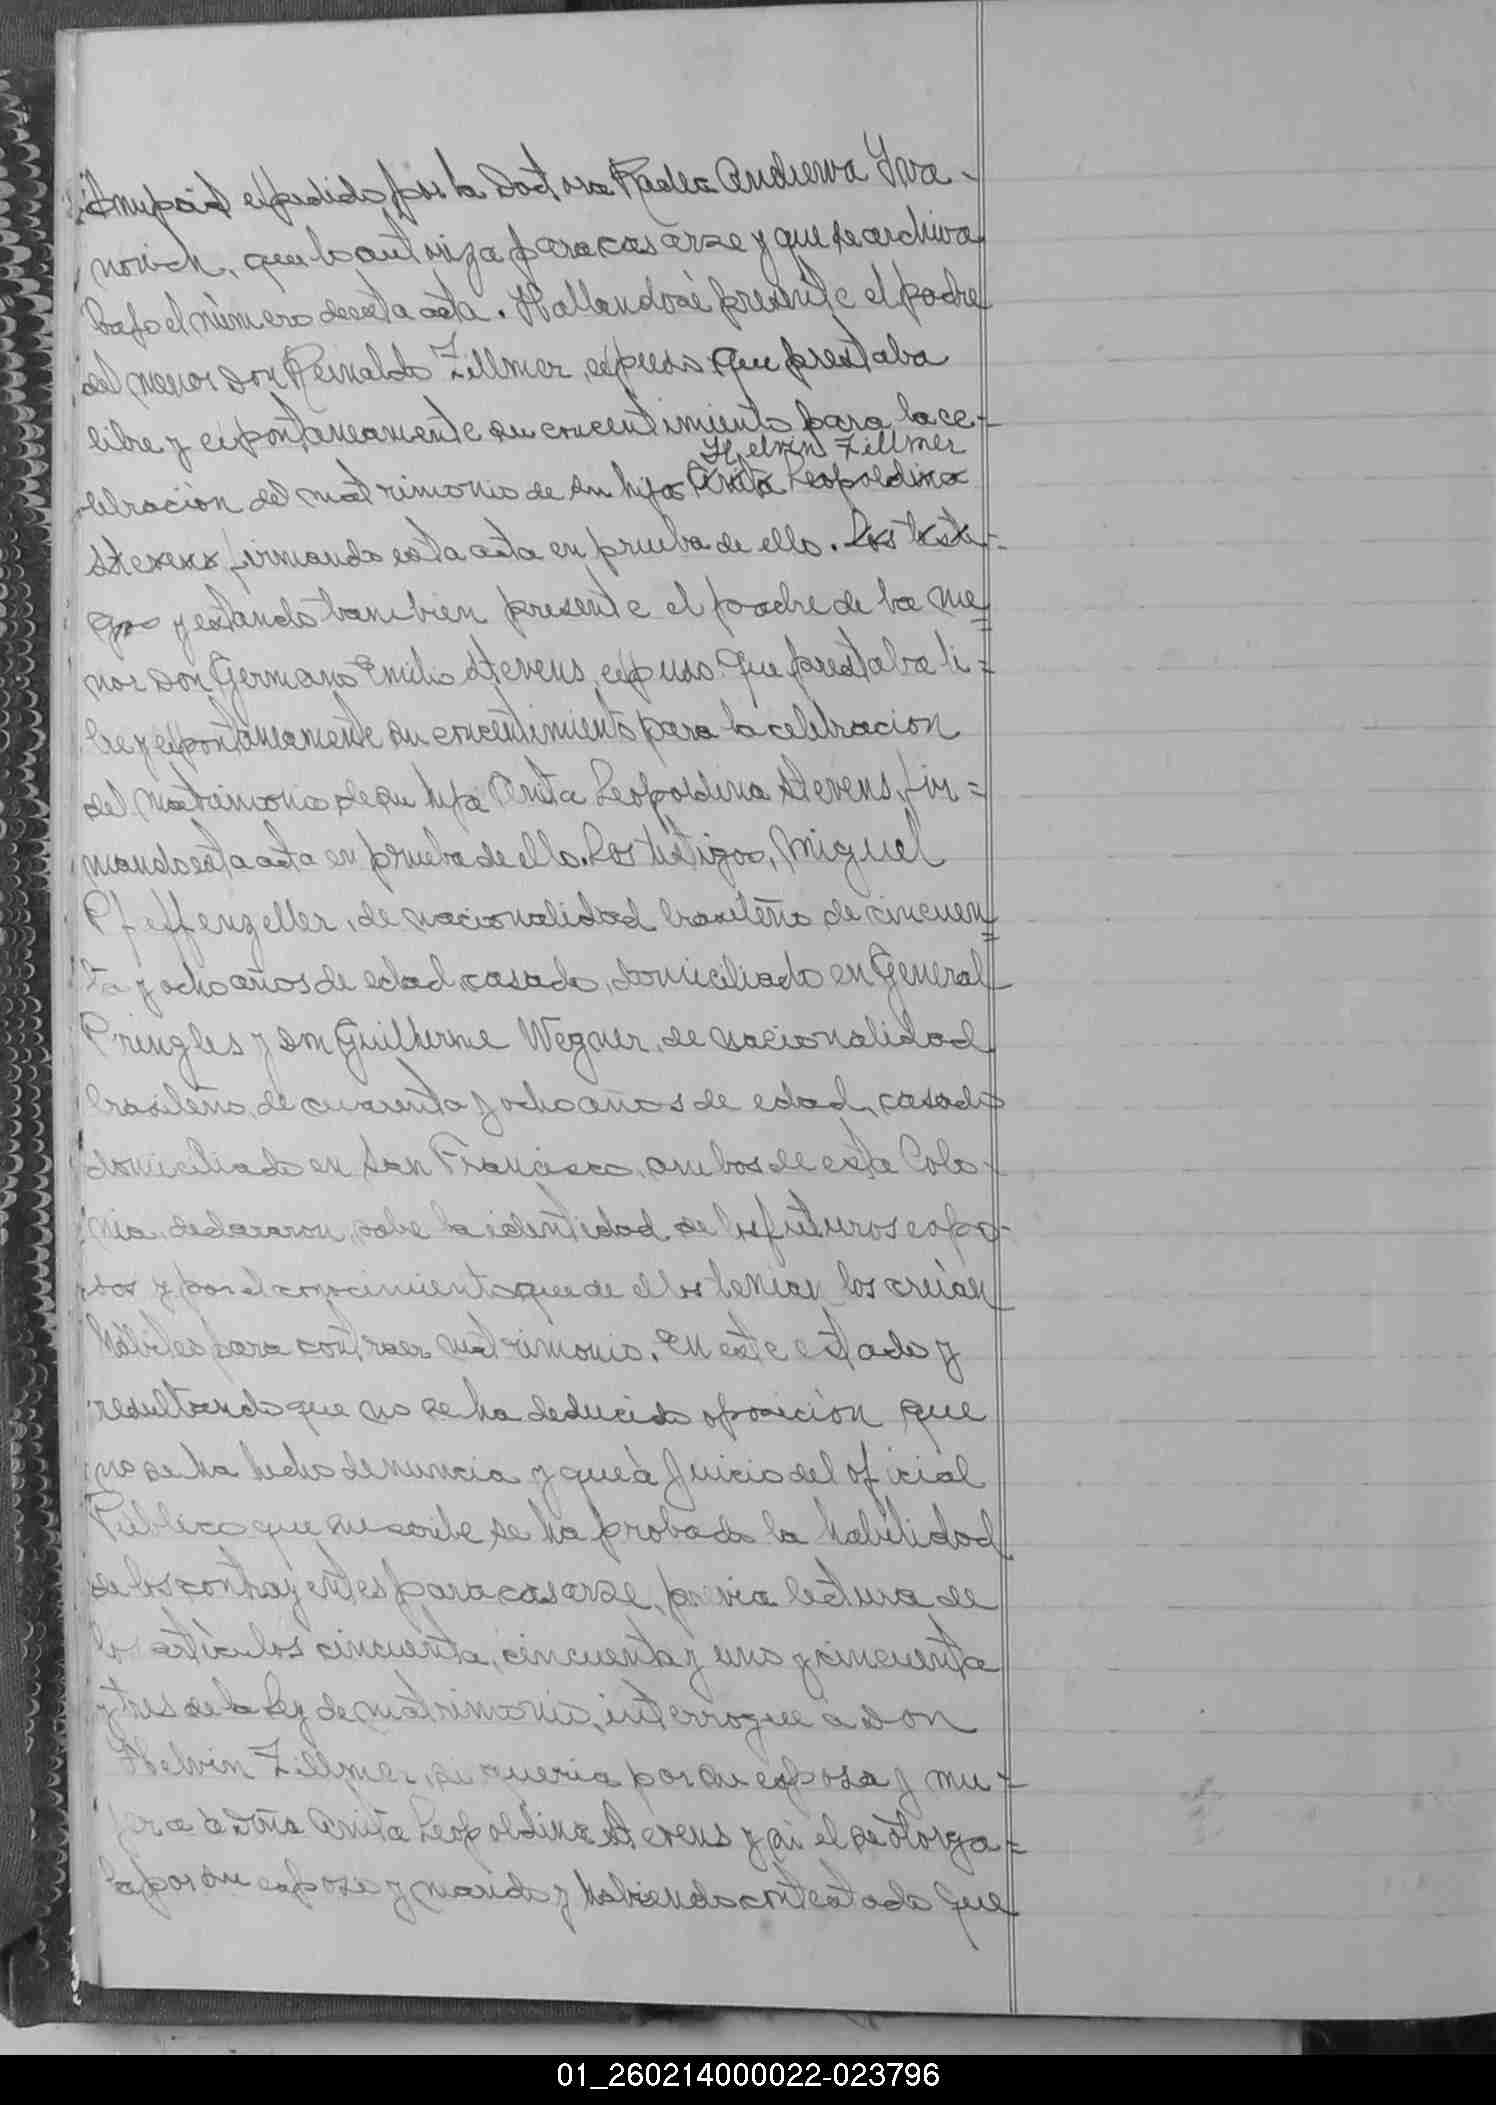 expedido por la Doctora Radea Andrewa Yva-
novich, que lo autoriza para casarse y que se archiva
bajo el número de esta acta. Hallandose presente el padre
del menor Don Reinaldo Zillmer, expuso que prestaba
libre y expontaneamente su concentimiento para la ce-
Helvin Zillmer
lebración del matrimonio de su hijo Anita Leopoldina
Stevens firmando esta acta en prueba de ello. Los testi-
gos y estando tambien presente el padre de la me=
nor Don Germano Emilio Stevens, expuso que prestaba li=
bre y expontaneamente su concentimiento para la celebracion
del matrimonio de su hija Anita Leopoldina Stevens, fir=
mando esta acta en prueba de ello. Los testigos, Miguel
Pfeffenzeller, de nacionalidad brasileño, de cincuen=
ta y ocho años de edad, casado, domiciliado en General
Pringles y Don Guilherme Wegner, de nacionalidad
brasileño, de cuarenta y ocho años de edad, casado
domiciliado en San Francisco, ambos de esta Colo-
nia, declararon, sobre la identidad de los futuros espo-
sos y por el conocimiento que de ellos tenian los creían
hábiles para contraer matrimonio. En este estado y
resultando que no se ha deducido oposición que
no se ha hecho denuncia y que à juicio del oficial
Público que suscribe se ha probado la habilidad
de los contrayentes para casarse, previa lectura de
los artículos cincuenta, cincuenta y uno y cincuenta
y tres de la Ley de matrimonio, interrogué a Don
Helvin Zillmer, si queria por su esposa y mu-
jer a Doña Anita Leopoldina Stevens y si el se otorga=
ba por su esposo y marido y habiendo contestado que
01_260214000022-023796